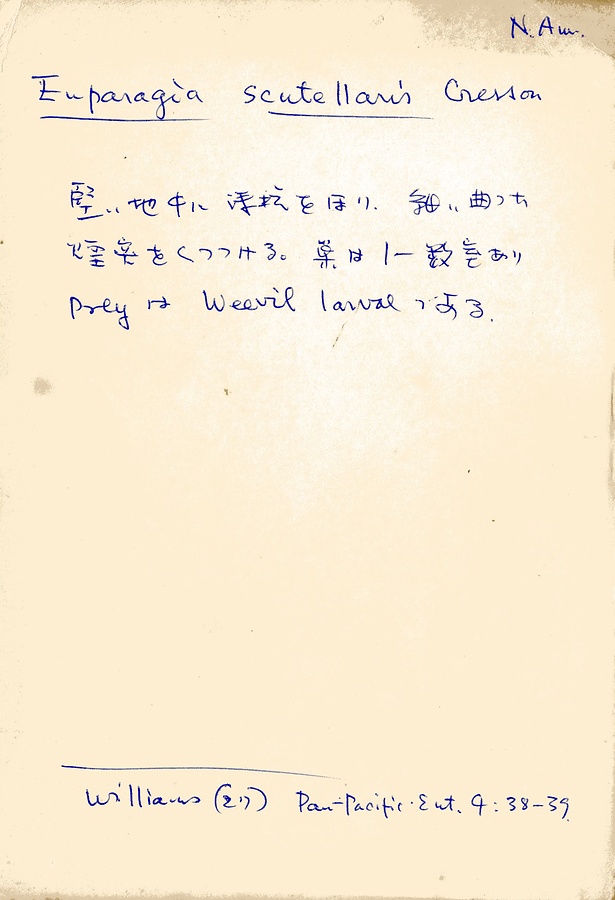 N. Am.
Euparagia scutellaris Cresson
堅い地中に深坑をほり、細い曲った
煙突をくっつける。巣は1-数室あり
prey は Weevil larvae である.
Williams ('27) Pan-Pacific Ent. 4: 38-39